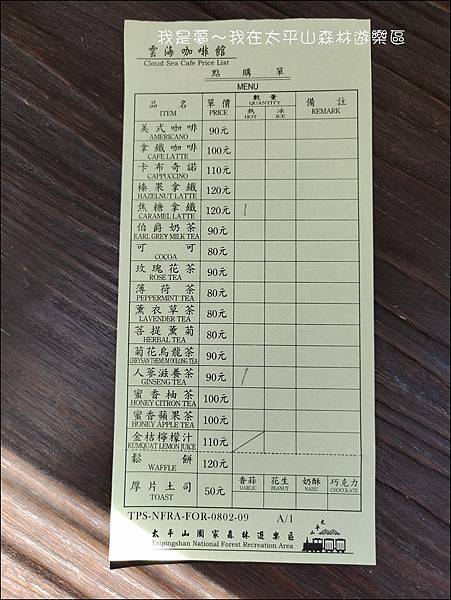 我是夢～我在太平山森林遊樂區
雲海咖啡館
Cloud Sea Cafe Price List
點購單
MENU
品名 單價 數量 備註
ITEM PRICE QUANTITY REMARK
熱 冰
HOT ICE
美式咖啡 90元
AMERICANO
拿鐵咖啡 100元
CAFE LATTE
卡布奇諾 110元
CAPPUCCINO
榛果拿鐵 120元
HAZELNUT LATTE
焦糖拿鐵 120元
CARAMEL LATTE
伯爵奶茶 90元
EARL GREY MILK TEA
可可 80元
COCOA
玫瑰花茶 90元
ROSE TEA
薄荷茶 80元
PEPPERMINT TEA
薰衣草茶 80元
LAVENDER TEA
菩提薰菊 80元
HERBAL TEA
菊花烏龍茶 90元
CHRYSAN THEMUM OOLONG TEA
人蔘滋養茶 90元
GINSENG TEA
蜜香柚茶 100元
HONEY CITRON TEA
蜜香蘋果茶 100元
HONEY APPLE TEA
金桔檸檬汁 110元
KUMQUAT LEMON JUICE
鬆餅 120元
WAFFLE
厚片土司 50元 香蒜 花生 奶酥 巧克力
TOAST GARLIC PEANUT NAISU CHOCOLATE
TPS-NFRA-FOR-0802-09 A/1
太平山國家森林遊樂區
Taipingshan National Forest Recreation Area
太平山